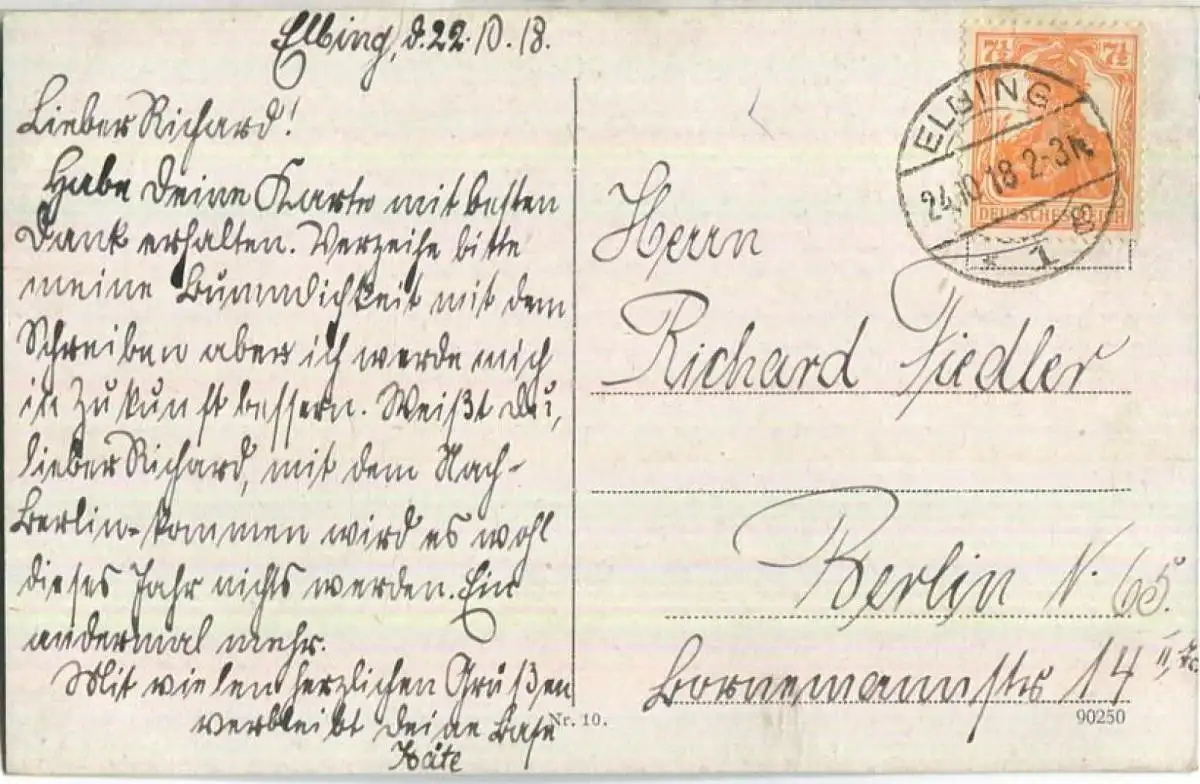 Elbing, d. 22.10.18.
Lieber Richard!
Habe Deine Karte mit besten
Dank erhalten. Verzeihe bitte
meine Bummlichkeit mit dem
Schreiben aber ich werde mich
in Zukunft bessern. Weißt Du,
lieber Richard, mit dem Nach-
Berlin-kommen wird es wohl
dieses Jahr nichts werden. Ein
andermal mehr.
Mit vielen herzlichen Grüßen
verbleibt Deine Base
Käte
7½ 7½
DEUTSCHES REICH
ELBING
24.10.18 2-3N
* 1 g
Herrn
Richard Fiedler
Berlin N. 65.
Bornemannstr 14 II
Nr. 10.
90250